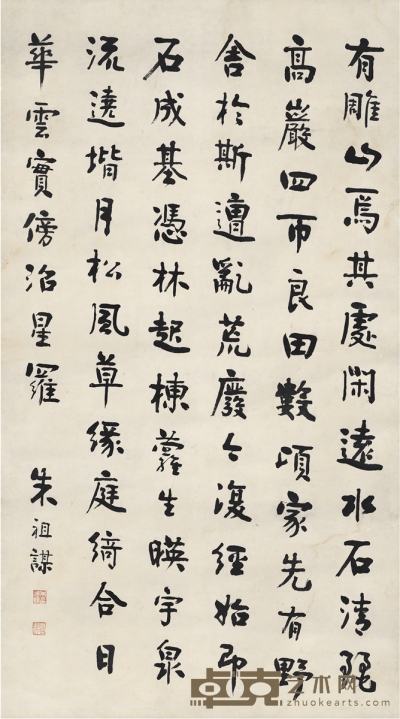 有雕山焉其處閑遠水石清麗
高巖四帀良田數頃家先有野
舍於斯遭亂荒廢今復經始即
石成基憑林起棟蘿生暎宇泉
流遶堦月松風草緣庭綺合日
華雲實傍沼星羅
朱祖謀
卓克艺术网
www.zhuokearts.com